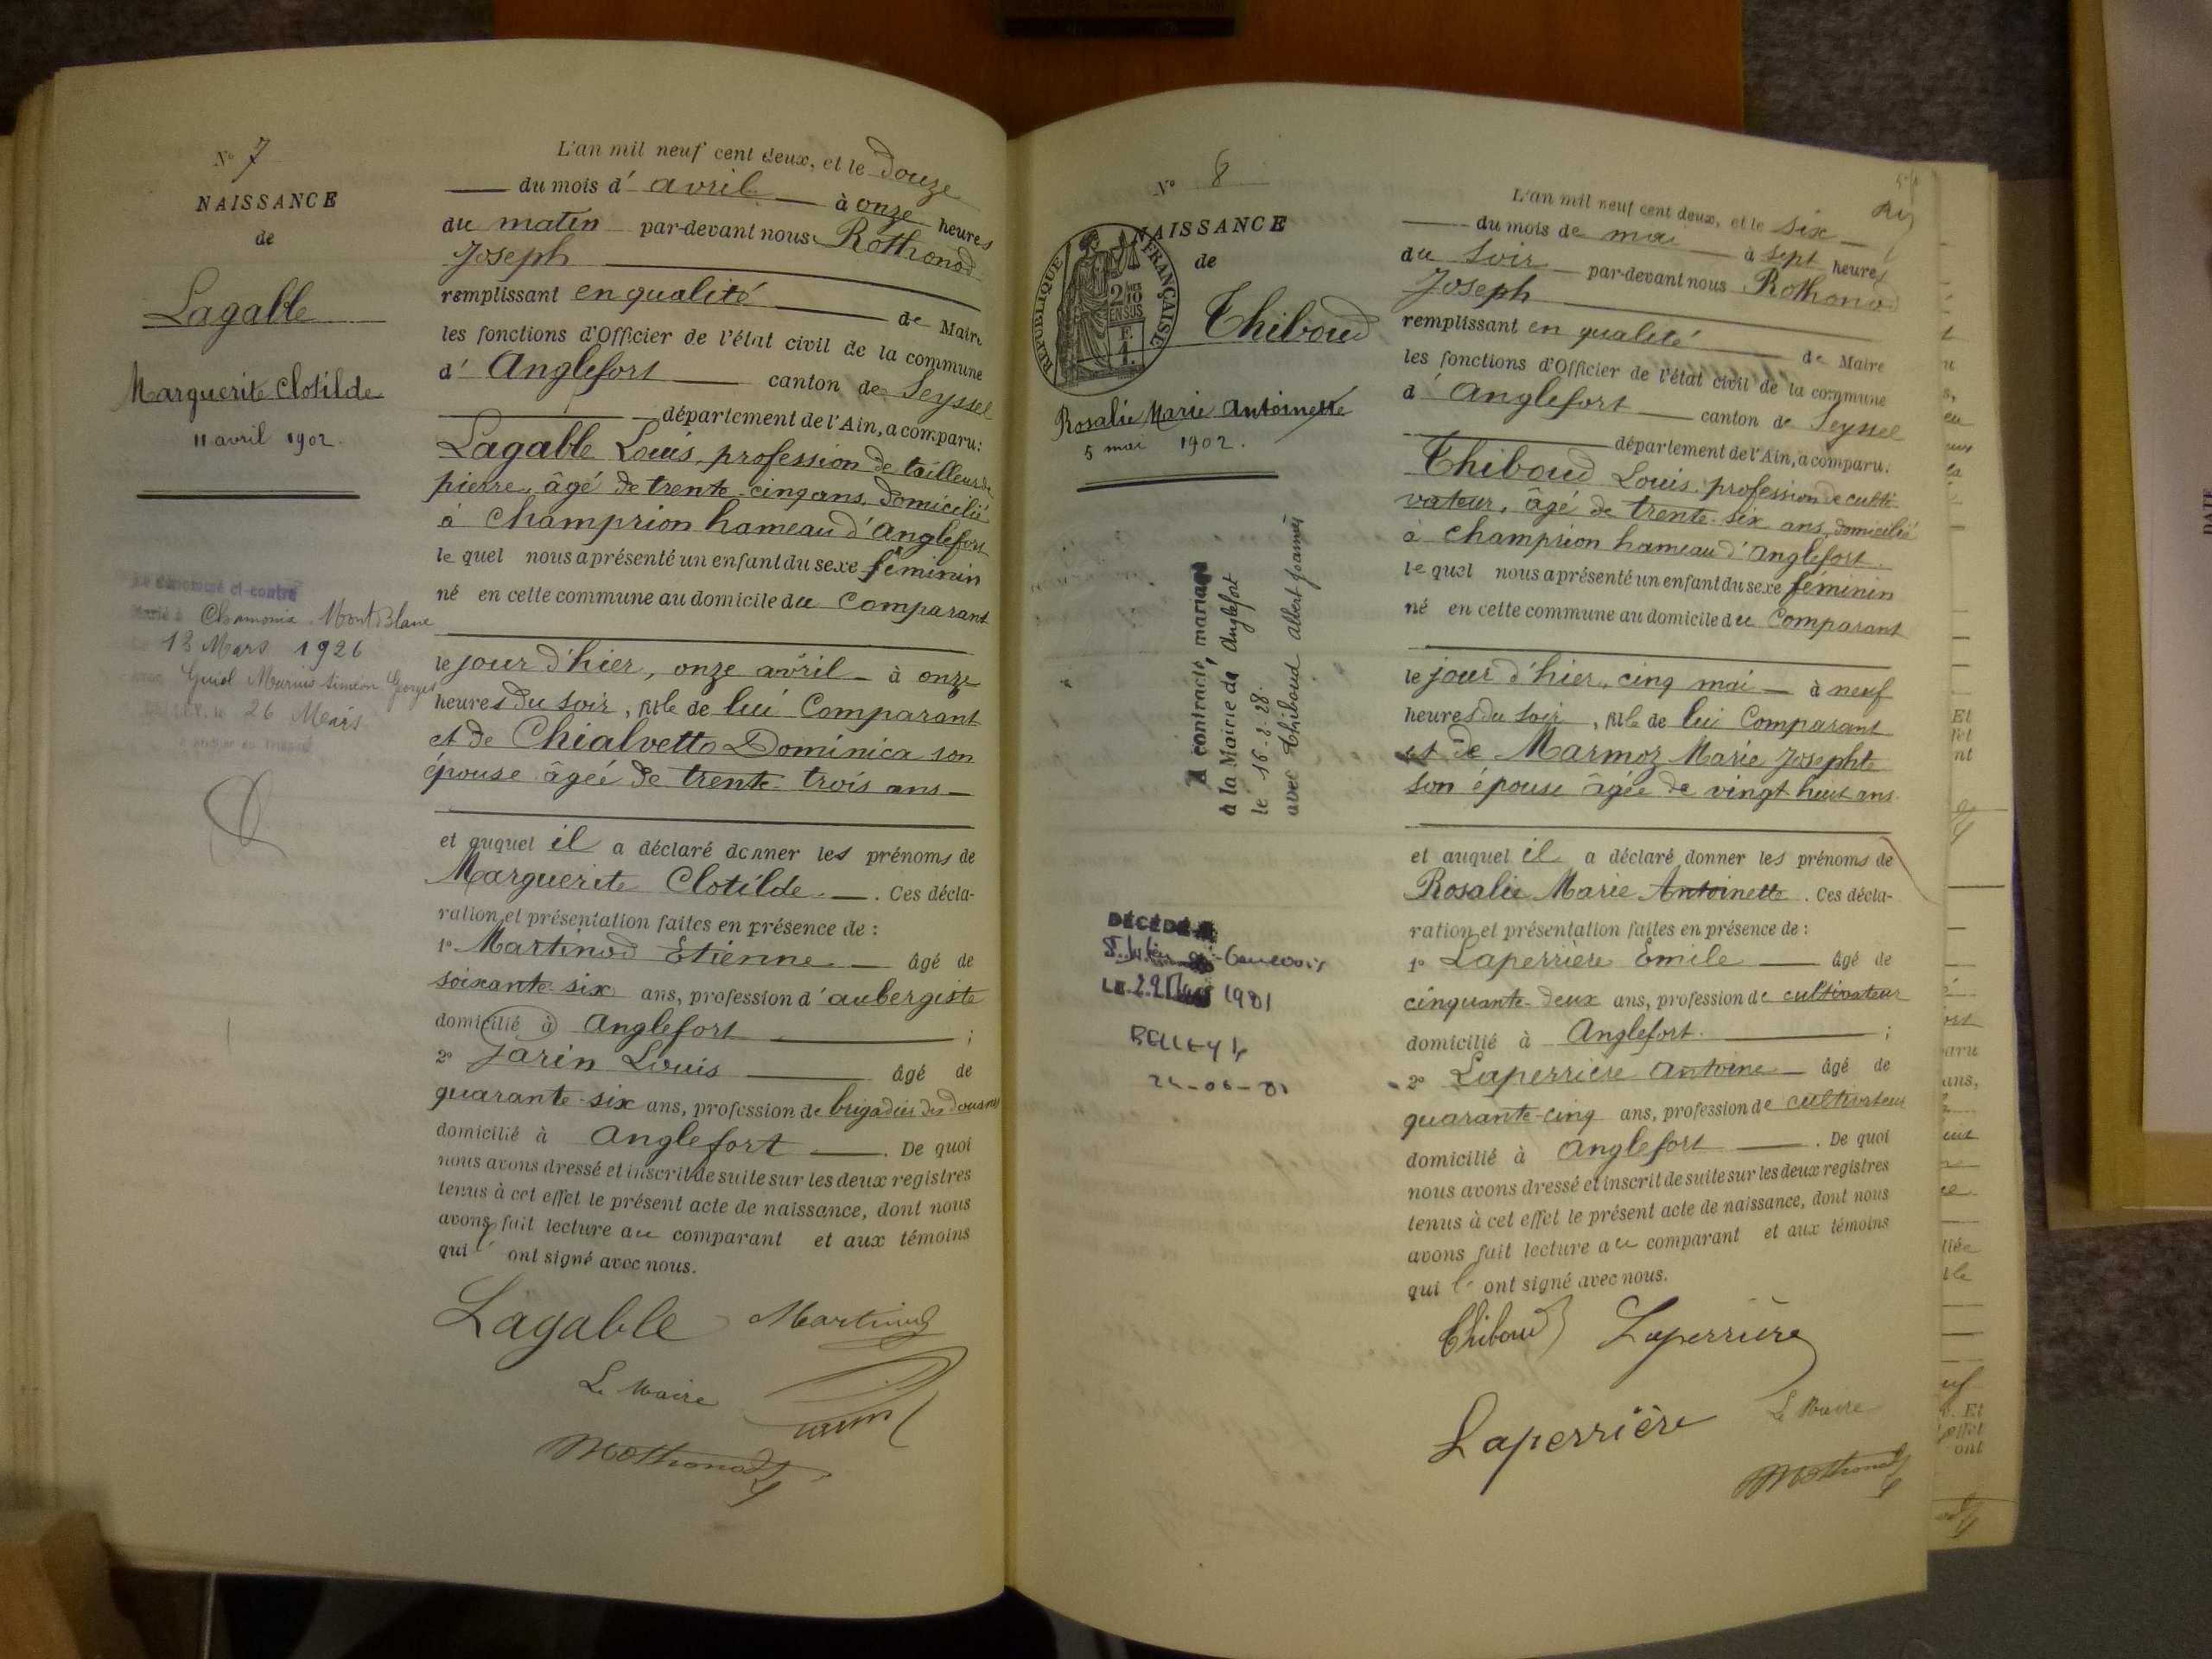 N° 7
NAISSANCE
de
Lagable
Marguerite Clotilde
11 avril 1902.
Le dénommé ci-contre
Marié à Chamonix Mont Blanc
13 Mars 1926
avec Guiol Marius Siméon Georges
26 Mars
L'an mil neuf cent deux, et le douze
du mois d' avril à onze heures
du matin par-devant nous Rothonod
Joseph
remplissant en qualité de Maire
les fonctions d'Officier de l'état civil de la commune
d' Anglefort canton de Seyssel
département de l'Ain, a comparu:
Lagable Louis, profession de tailleur de
pierre, âgé de trente-cinq ans, domicilié
à Champrion hameau d'Anglefort
le quel nous a présenté un enfant du sexe féminin
né en cette commune au domicile du Comparant
le jour d'hier, onze avril à onze
heures du soir, fille de lui Comparant
et de Chialvetto Dominica son
épouse âgée de trente-trois ans
et auquel il a déclaré donner les prénoms de
Marguerite Clotilde. Ces décla-
ration et présentation faites en présence de :
1° Martinod Etienne âgé de
soixante-six ans, profession d'aubergiste
domicilié à Anglefort ;
2° Jarin Louis âgé de
quarante-six ans, profession de brigadier des douanes
domicilié à Anglefort. De quoi
nous avons dressé et inscrit de suite sur les deux registres
tenus à cet effet le présent acte de naissance, dont nous
avons fait lecture au comparant et aux témoins
qui ont signé avec nous.
Lagable Martinod
Le Maire Jarin
Rothonod
N° 8
NAISSANCE
de
RÉPUBLIQUE FRANÇAISE
2/10
EN SUS
Thiboud
Rosalie Marie Antoinette
5 mai 1902.
A contracté mariage
à la Mairie de Anglefort
le 16-2-28.
avec Thiboud Albert Joannès
DÉCÉDÉ A
St Julien en Genevois
LE 22 1981
BELLEY
24-06-81
L'an mil neuf cent deux, et le six
du mois de mai à sept heures
du soir par-devant nous Rothonod
Joseph
remplissant en qualité de Maire
les fonctions d'Officier de l'état civil de la commune
d' Anglefort canton de Seyssel
département de l'Ain, a comparu:
Thiboud Louis, profession de culti-
vateur, âgé de trente-six ans, domicilié
à Champrion hameau d'Anglefort.
le quel nous a présenté un enfant du sexe féminin
né en cette commune au domicile du Comparant
le jour d'hier, cinq mai à neuf
heures du soir, fille de lui Comparant
et de Marmoz Marie Josephte
son épouse âgée de vingt-huit ans.
et auquel il a déclaré donner les prénoms de
Rosalie Marie Antoinette. Ces décla-
ration et présentation faites en présence de :
1° Laperrière Emile âgé de
cinquante-deux ans, profession de cultivateur
domicilié à Anglefort. ;
2° Laperrière Antoine âgé de
quarante-cinq ans, profession de cultivateur
domicilié à Anglefort. De quoi
nous avons dressé et inscrit de suite sur les deux registres
tenus à cet effet le présent acte de naissance, dont nous
avons fait lecture au comparant et aux témoins
qui l' ont signé avec nous.
Thiboud Laperrière
Laperrière Le Maire
Rothonod
DATE